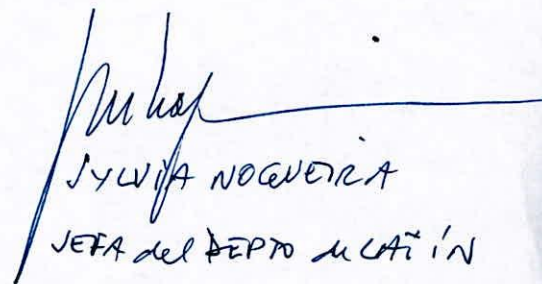 SYLVIA NOGUEIRA
JEFA del DEPTO de LATÍN